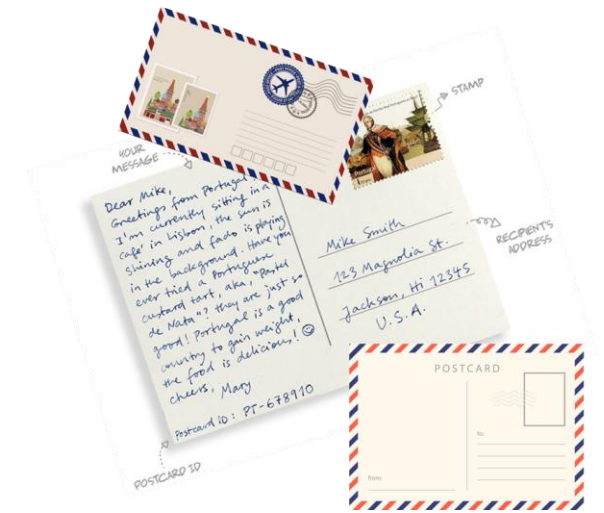 STAMP
YOUR
MESSAGE
Dear Mike,
Greetings from Portugal
I'm currently sitting in a
cafe' in Lisbon, the sun is
shining and fado is playing
in the background. Have you
ever tried a Portuguese
custard tart, aka, "pastel
de Nata"? they are just so
good! Portugal is a good
country to gain weight,
the food is delicious!
cheers, Mary
Postcard iD: PT-678910
POSTCARD ID
Mike Smith
123 Magnolia St.
Jackson, Hi 12345
U.S.A.
RECIPIENTS
ADDRESS
POSTCARD
To:
From: